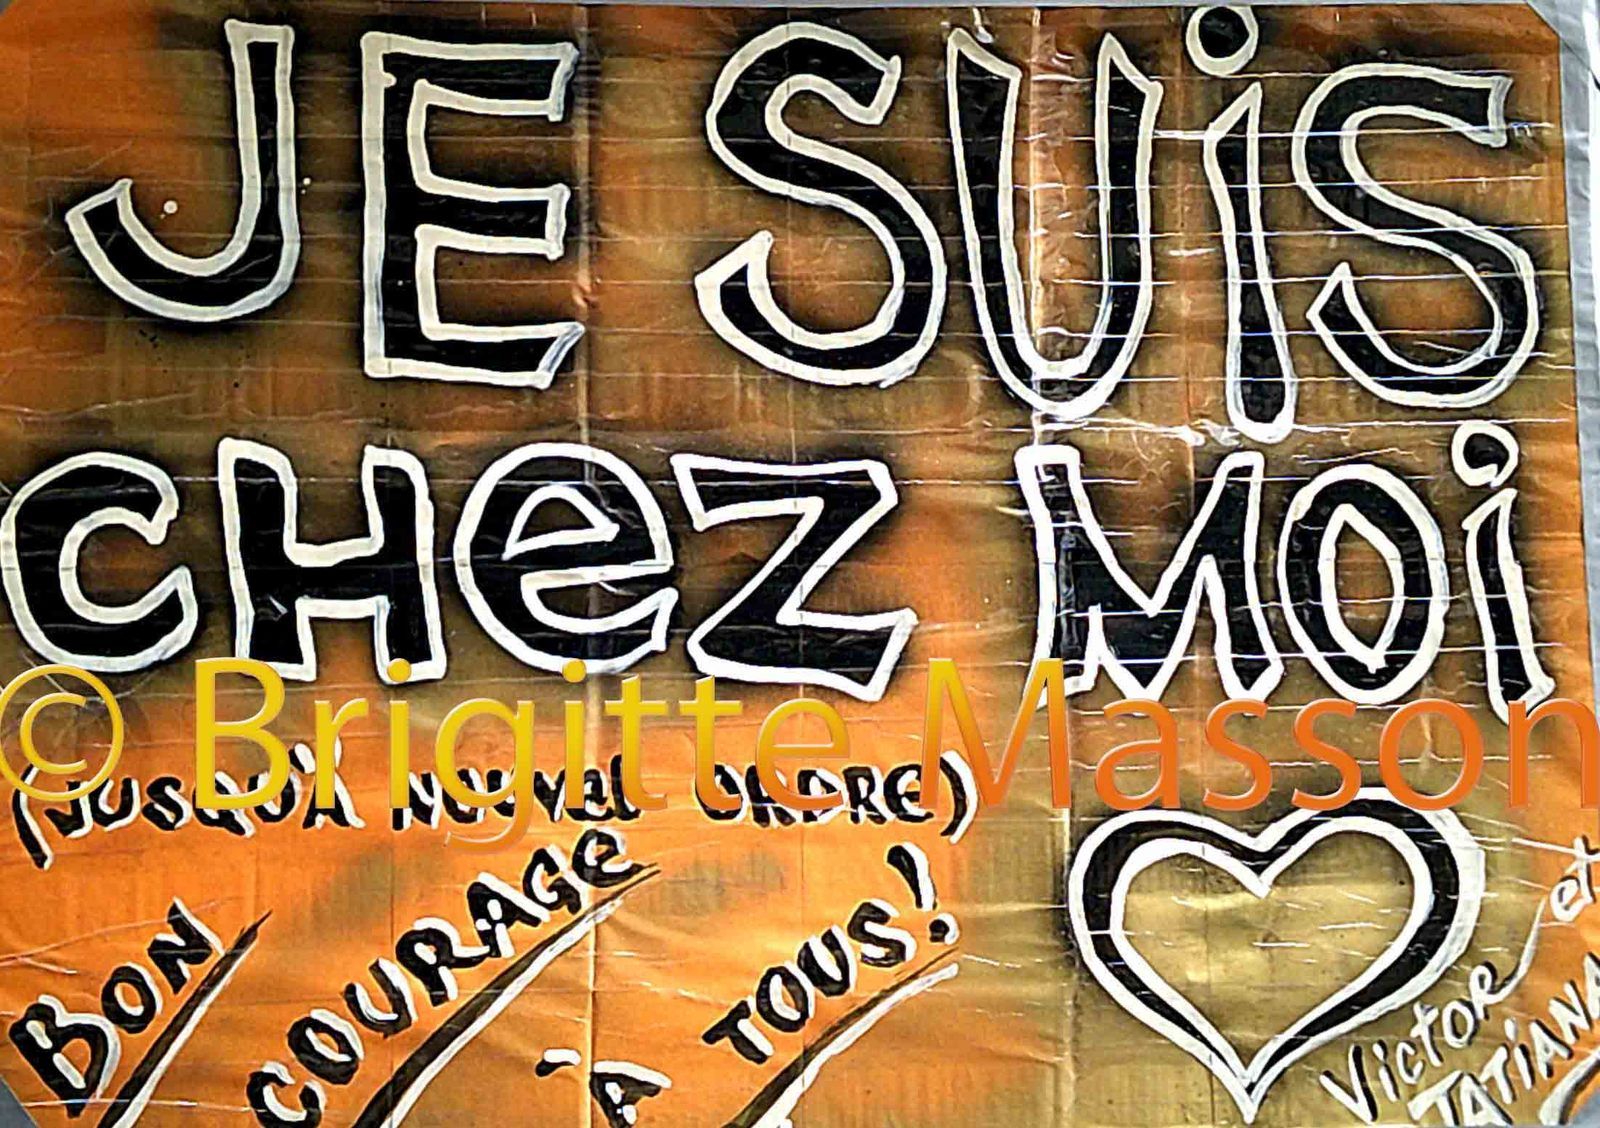 JE SUiS
CHeZ MOi
© Brigitte Masson
(JUSQU'À NOUVEL ORDRE)
BON COURAGE À TOUS!
Victor et
TATiANA